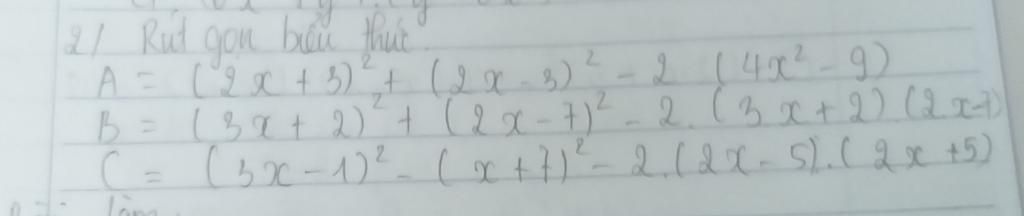 2/ Rút gọn biểu thức.
A = (2x + 3)² + (2x - 3)² - 2 (4x² - 9)
B = (3x + 2)² + (2x - 7)² - 2. (3x + 2) (2x - 7)
C = (3x - 1)² - (x + 7)² - 2. (2x - 5). (2x + 5)